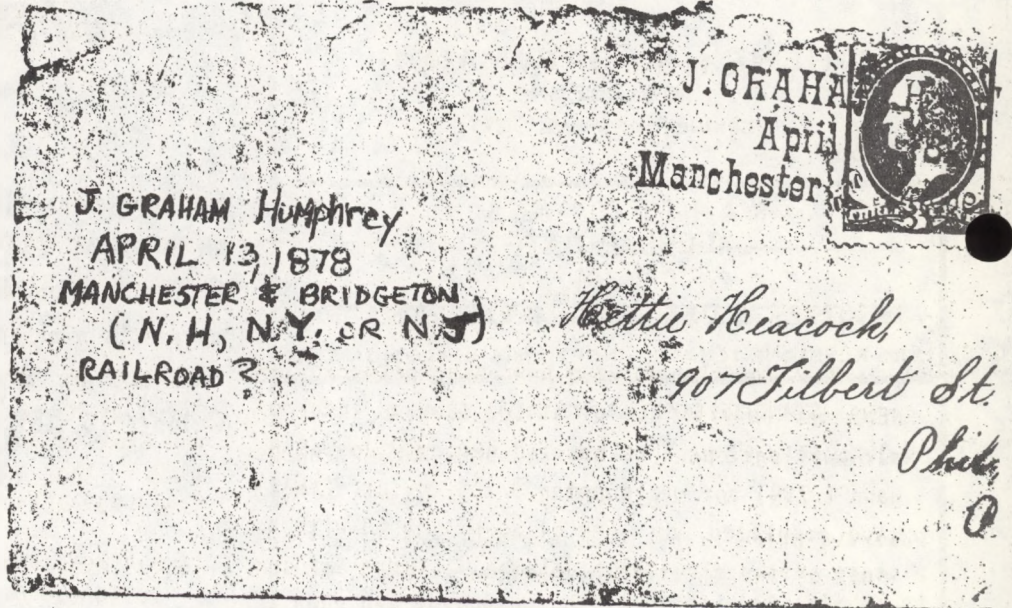 J. GRAHA
April
Manchester
J. GRAHAM Humphrey
APRIL 13, 1878
MANCHESTER & BRIDGETON
(N.H., N.Y. OR N.J)
RAILROAD?
Hettie Heacock,
907 Filbert St.